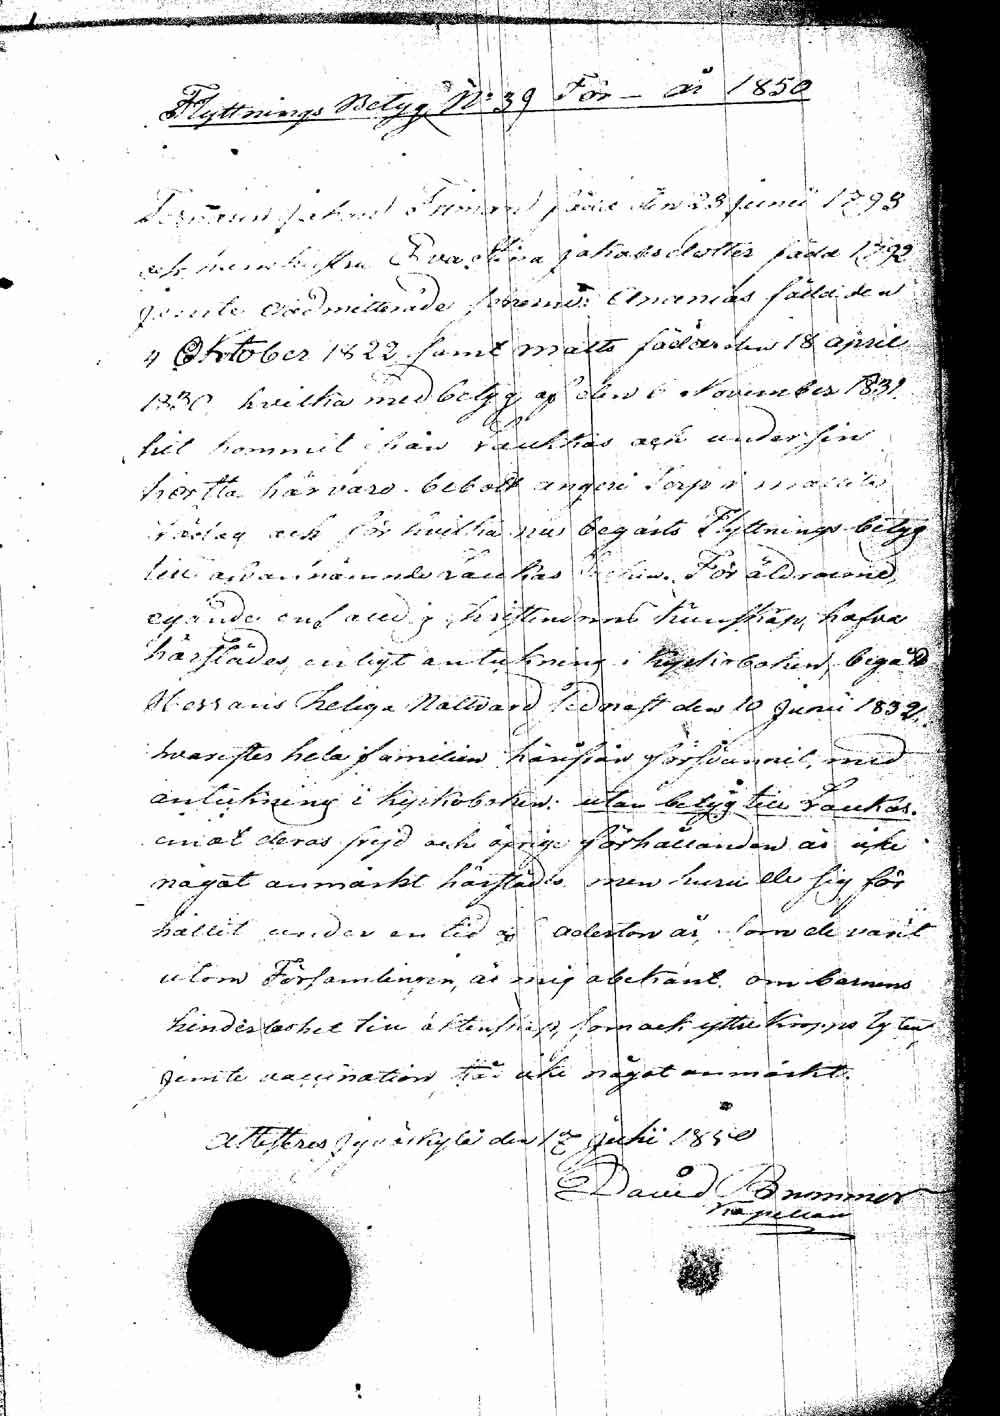 Flyttnings Betyg No 39 För år 1850
Jakob Friman född den 23 junii 1793
och hans hustru Eva Stina jakobsdotter född 1792
jemte oadmitterade sönerne: Ananias född den
4 Oktober 1822 samt Matts född den 18 april
1830, hvilka med betyg af den 6 November 1831
hit kommit ifrån Laukkas och under sin
härvaro bebott torp i
och för hvilka nu begärts Flyttnings betyg
till Laukas Föräldrarne,
egande christendoms kunskap, hafva
härstädes, enligt antekning i kyrkoboken, begådt
Herrans heliga Nattvard sednast den 10 Junii 1832,
hvarefter hela familien härifrån försvunnit, med
antekning i kyrkoboken: utan betyg till Laukas.
emot deras frejd och öfrige förhållanden är icke
något anmärkt härstädes men huru de sig för
hållit under en tid af aderton år, som de varit
utom Församlingen, är mig obekant. om barnens
hinderlöshet till äktenskap, som ock yttre kropps lyten
jemte vaccination är icke något anmärkt.
Attesteras Jyväskylä den 17 Julii 1850
David Brummer
Kapellan